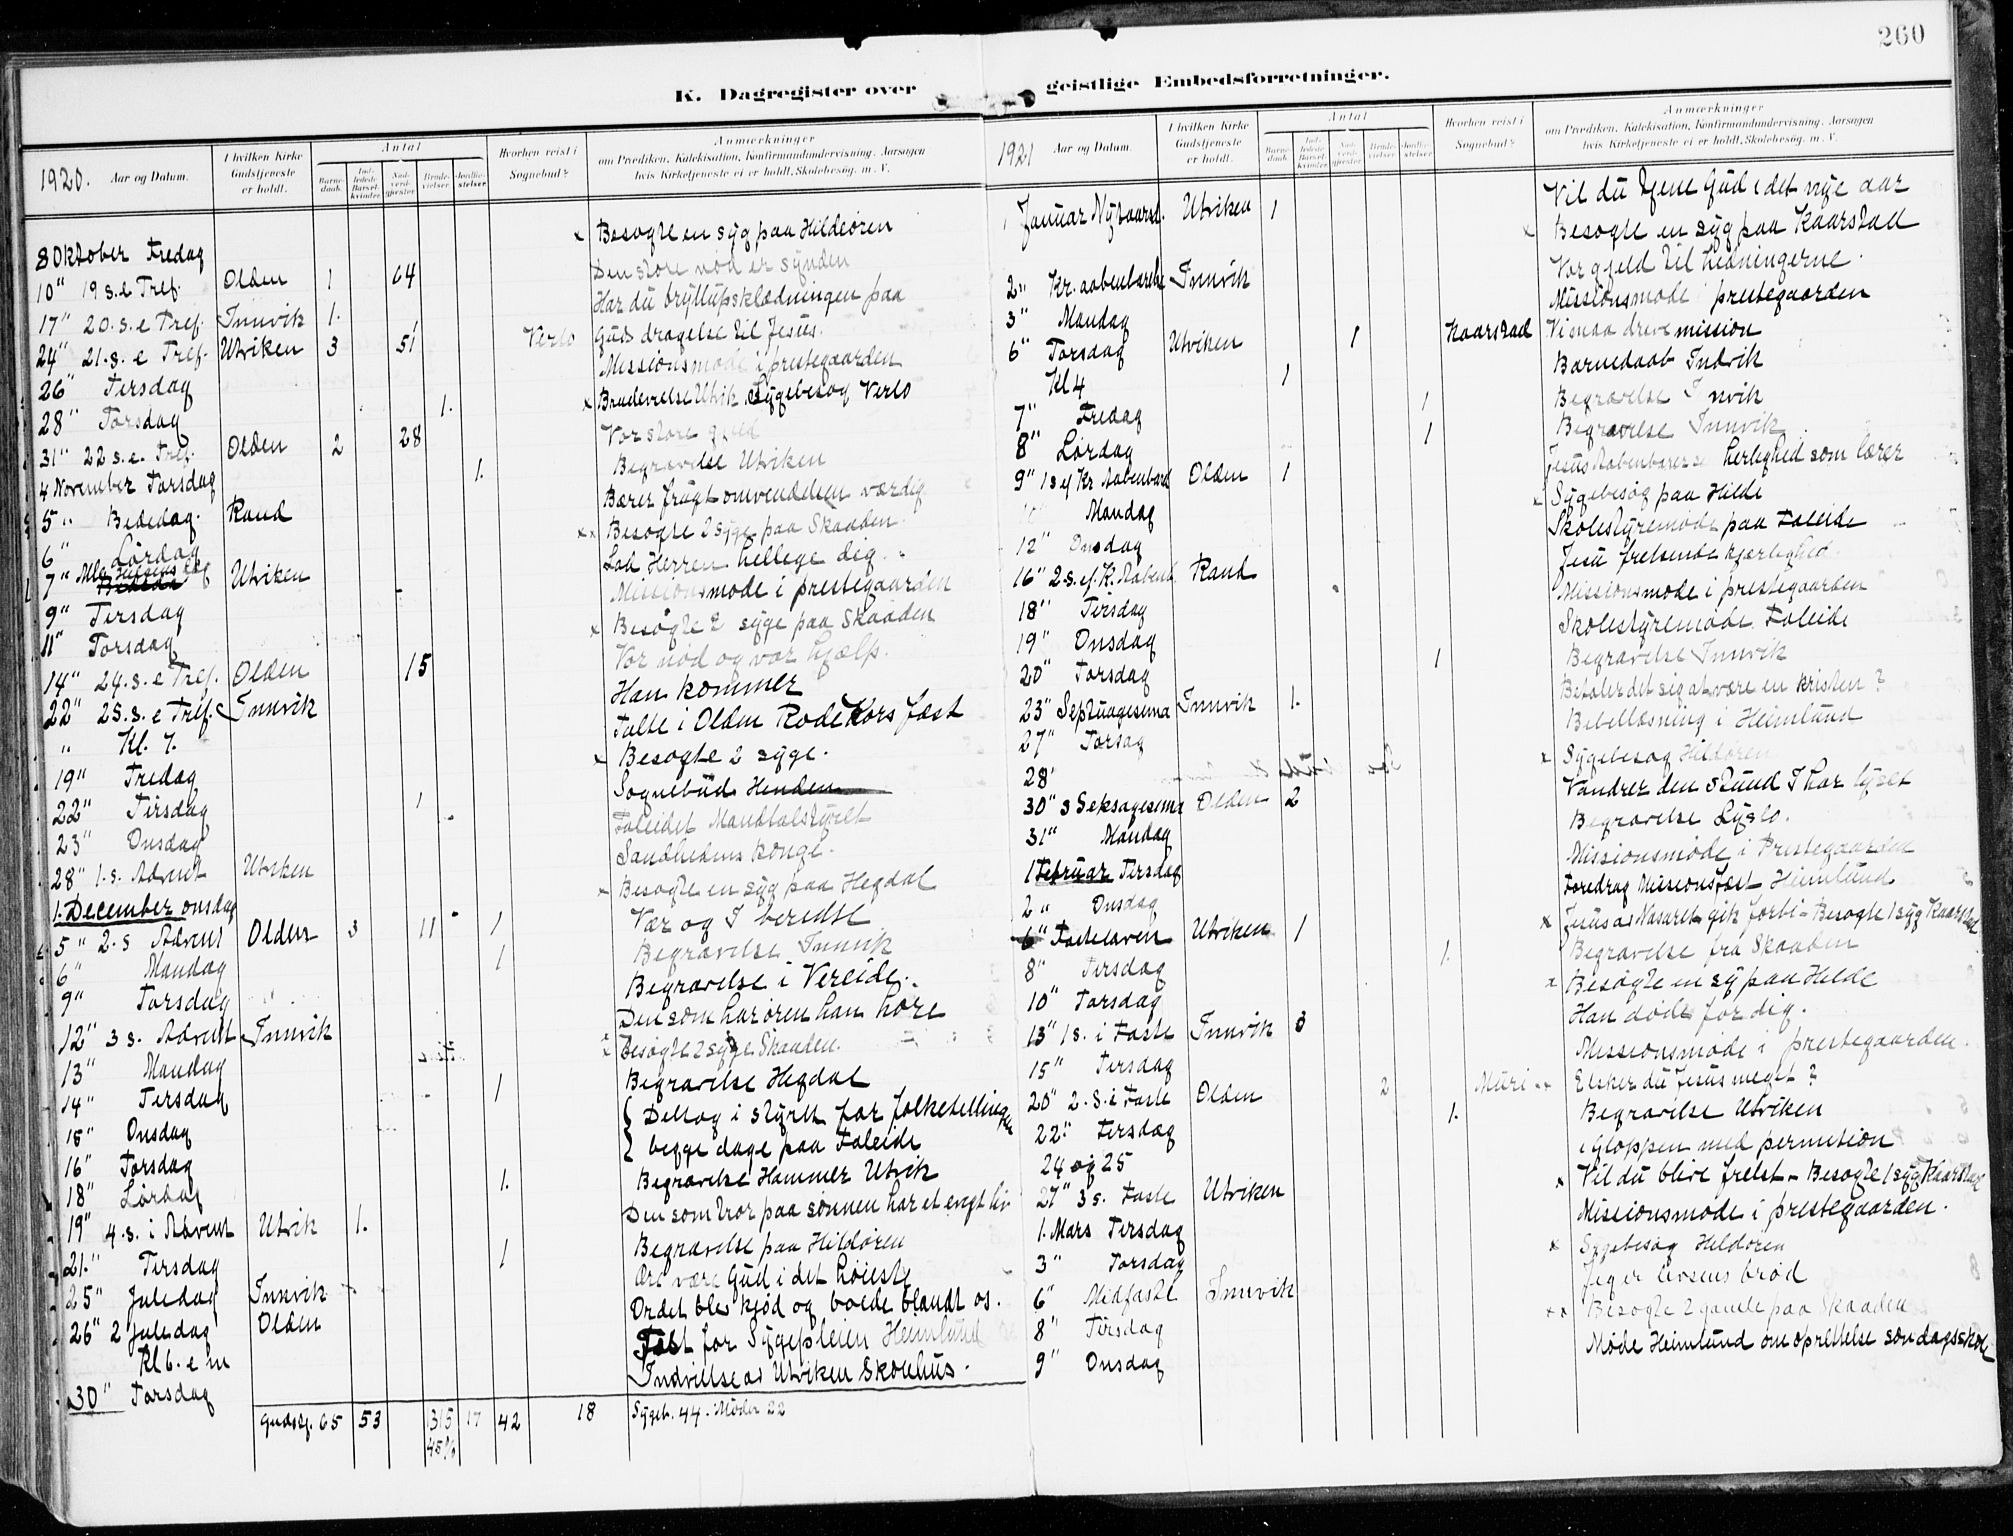 260
K. Dagregister over geistlige Embedsforretninger.
1920. Aar og Datum. I hvilken Kirke Gudstjeneste er holdt. Antal Barnedaab. Indledede Barselkvinder. Nadverdgjæster. Brudevielser. Jordfæstelser. Hvorhen reist i Sognebud? Anmærkninger om Prædiken, Katekisation, Konfirmandundervisning, Aarsagen hvis Kirketjeneste ei er holdt, Skolebesøg, m. V.
8 Oktober Fredag x Besøgte en syg paa Hildeøren
10" 19 s. e Tref. Olden 1 64 Den store nød er synden
17" 20. s. e Tref. Innvik 1. Har du bryllupsklædningen paa
24" 21. s. e Tref. Utviken 3 51 Guds dragelse til Jesus.
26" Tirsdag Missionsmøde i prestegaarden
28" Torsdag 1. Verlo x Brudevielse Utvik. Sygebesøg Verlo
31" 22 s. e. Tref. Olden 2 28 Vor store gjeld
4 November Torsdag 1. Begravelse Utviken
5" Bededag. Rand Bærer frugt omvendelsen værdig
6" Lørdag xx Besøgte 2 syge paa Skaaden.
7" Alle Helgens dag Utviken Lad Herren hellege dig.
9" Tirsdag Missionsmøde i prestegaarden
11" Torsdag x Besøgte 2 syge paa Skaaden
14" 24. s. e Tref. Olden 15 Vor nød og vor hjælp.
22" 25. s. e Tref. Innvik Han kommer
" Kl. 7. Talte i Olden Røde Kors fæst
19" Fredag x Besøgte 2 syge.
22" Tirsdag Sognebud Henden
23" Onsdag Faleidet Mandtalstyret
28" 1. s. Advent Utviken Sandhedens konge.
1. December onsdag x Besøgte en syg paa Hegdal
5" 2. s Advent Olden 3 11 1 Vær og I beredte
6" Mandag 1 Begravelse Innvik
9" Torsdag Begravelse i Vereide.
12" 3 s. Advent Innvik Den som har øren han høre
13" Mandag Besøgte 2 syge Skaaden.
14" Tirsdag 1 Begravelse Hegdal
15" Onsdag { Deltog i styret for folketellingen
16" Torsdag { begge dage paa Faleide
18" Lørdag 1. Begravelse Hammer Utvik
19" 4. s. i Advent Utvik 1. Den som tror paa sønnen har et evigt liv
21." Tirsdag 1 Begravelse paa Hildøren
25" Juledag Innvik Ære være Gud i det høieste
26" 2 Juledag Olden Ordet blev kjød og boede blandt os.
Kl 6. e m Fest for Sygepleien Heimlund
30" Torsdag Indvielse av Utviken Skolehus.
Gudstj. 65 53 315 17 42 18 Sygeb. 44. Møder 22
45%
1921 Aar og Datum. I hvilken Kirke Gudstjeneste er holdt. Antal Barnedaab. Indledede Barselkvinder. Nadverdgjæster. Brudevielser. Jordfæstelser. Hvorhen reist i Sognebud? Anmærkninger om Prædiken, Katekisation, Konfirmandundervisning, Aarsagen hvis Kirketjeneste ei er holdt, Skolebesøg, m. V.
1 Januar Nytaarsd. Utviken 1 Vil du tjene Gud i det nye aar
x Besøgte en syg paa Kaarstad
2" Kr. aabenbarelse Innvik Vor gjeld til hedningerne.
3" Mandag Missionsmøde i prestegaarden
6" Torsdag Utviken 1 Kaarstad Vi maa drive mission
Kl 4 1 Barnedaab Indvik
7" Fredag 1 Begravelse Innvik
8" Lørdag 1 Begravelse Innvik
9" 1 s e Kr Aabenbard Olden 1 Jesus Aabenbarer se herlighed som lærer
10" Mandag x Sygebesøg paa Hilde
12" Onsdag Skolestyremøde paa Faleide
16" 2. s. e. K. Aabenb Rand Jesu frelsende kjærlighed
18" Tirsdag Missionsmøde i prestegaarden
19" Onsdag Skolestyremøde Faleide
20" Torsdag 1 Begravelse Innvik
23" Septuagesima Innvik 1. Betaler det sig at være en kristen?
27" Torsag Bibellæsning i Heimlund
28' x Sygebesøg Hildøren
30" s Seksagesima Olden 2 Vandrer den stund I har lyset
31" Mandag Begravelse Lyslo.
1 Februar Tirsdag Missionsmøde i Prestegaarden
2" Onsdag Foredrag Missionsfæst Heimlund
6" Fastelaven Utviken 1 x Jesus av Nasaret gik forbi - Besøgte 1 syg Kaarstad
8" Tirsdag 1. Begravelse fra Skaaden
10" Torsdag x Besøgte en sy paa Hilde
13" 1 s. i Faste Innvik 3 Han døde for dig.
15" Tirsdag Missionsmøde i prestegaarden.
20" 2. S. i Faste Olden 2 Muri Elsker du Jesus meget?
22." Tirsdag 1. Begravelse Utviken
24 og 25 i Gloppen med permition
27" 3 s. Faste Utviken x Vil du blive frelst - Besøgte 1 syg Kaarstad
1. Mars Tirsdag Missionsmøde i prestegaarden.
3" Torsdag x Sygebesøg Hildøren
6" Midfaste Innvik Jeg er livsens brød
8" Tirsdag xx Besøgte 2 gamle paa Skaaden
9" Onsdag Møde Heimlund om oprettelse søndagsskole